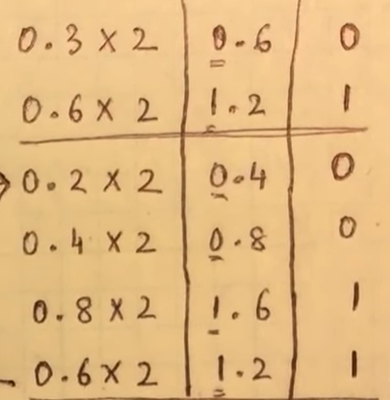 0.3 × 2 0.6 0
0.6 × 2 1.2 1
0.2 × 2 0.4 0
0.4 × 2 0.8 0
0.8 × 2 1.6 1
0.6 × 2 1.2 1